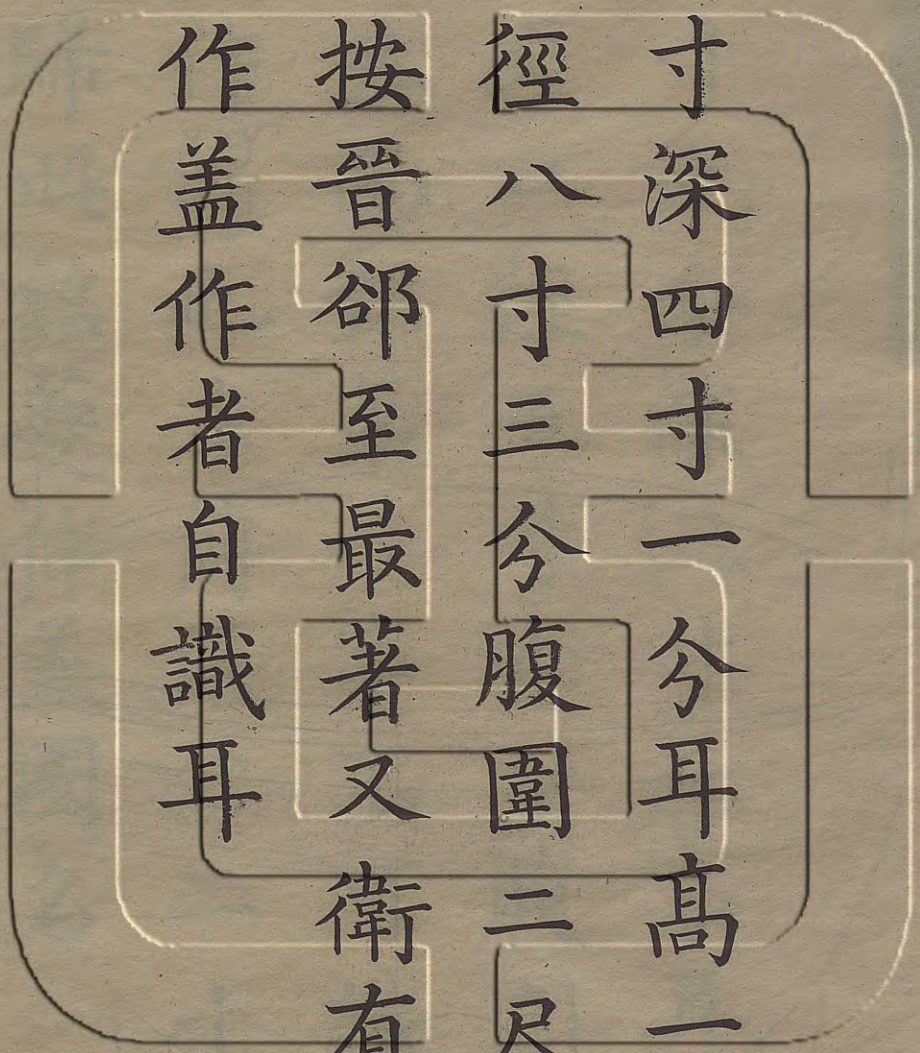 寸深四寸一分耳髙一
徑八寸三分腹圍二尺
按晉郤至最著又衛有
作盖作者自識耳